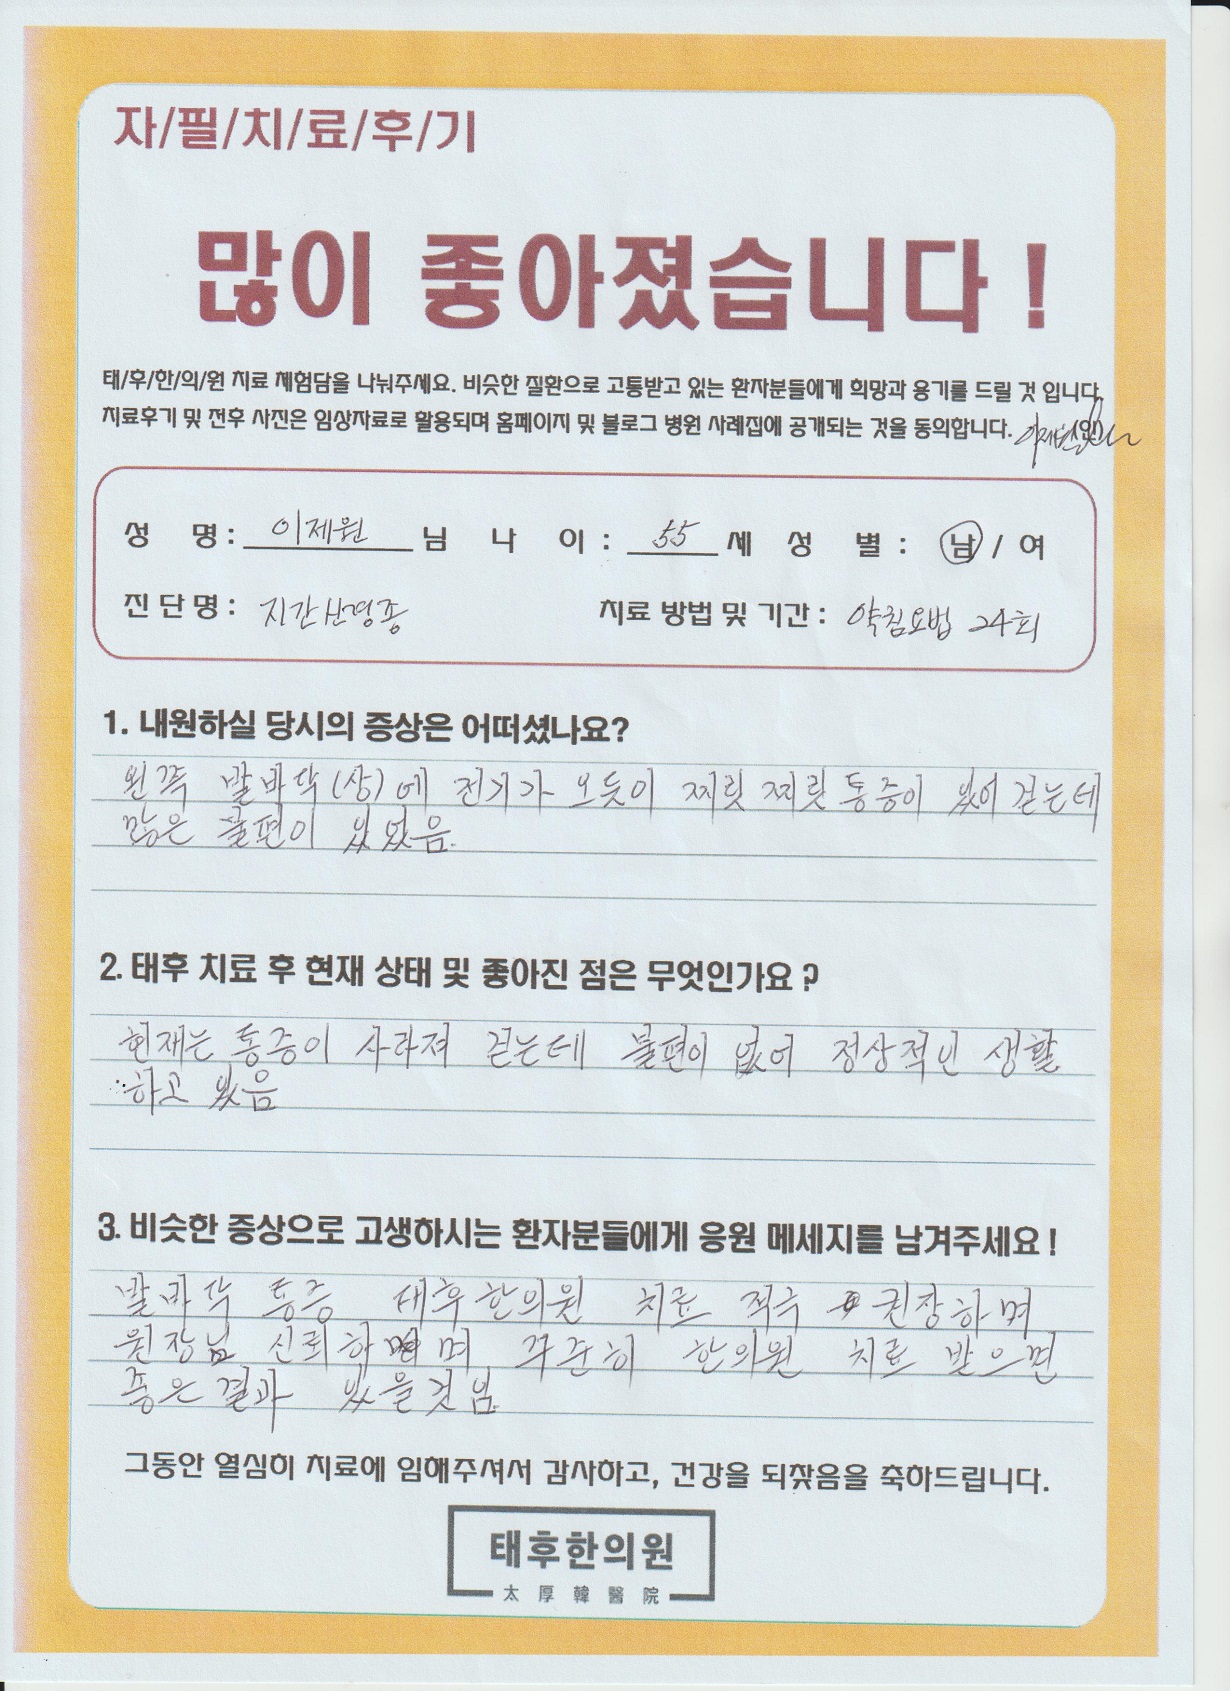 자/필/치/료/후/기
많이 좋아졌습니다 !
태/후/한/의/원 치료 체험담을 나눠주세요. 비슷한 질환으로 고통받고 있는 환자분들에게 희망과 용기를 드릴 것 입니다.
치료후기 및 전후 사진은 임상자료로 활용되며 홈페이지 및 블로그 병원 사례집에 공개되는 것을 동의합니다.
성 명 : 이제원 님 나 이 : 55 세 성 별 : 남 / 여
진 단 명 : 지간신경종 치료 방법 및 기간 : 약침요법 24회
1. 내원하실 당시의 증상은 어떠셨나요?
왼쪽 발바닥(상)에 전기가 오듯이 찌릿 찌릿 통증이 있어 걷는데
많은 불편이 있었음.
2. 태후 치료 후 현재 상태 및 좋아진 점은 무엇인가요 ?
현재는 통증이 사라져 걷는데 불편이 없어 정상적인 생활
하고 있음
3. 비슷한 증상으로 고생하시는 환자분들에게 응원 메세지를 남겨주세요 !
발바닥 통증 태후한의원 치료 적극 권장하며
원장님 신뢰하며 꾸준히 한의원 치료 받으면
좋은결과 있을것임.
그동안 열심히 치료에 임해주셔서 감사하고, 건강을 되찾음을 축하드립니다.
태후한의원
太 厚 韓 醫 院